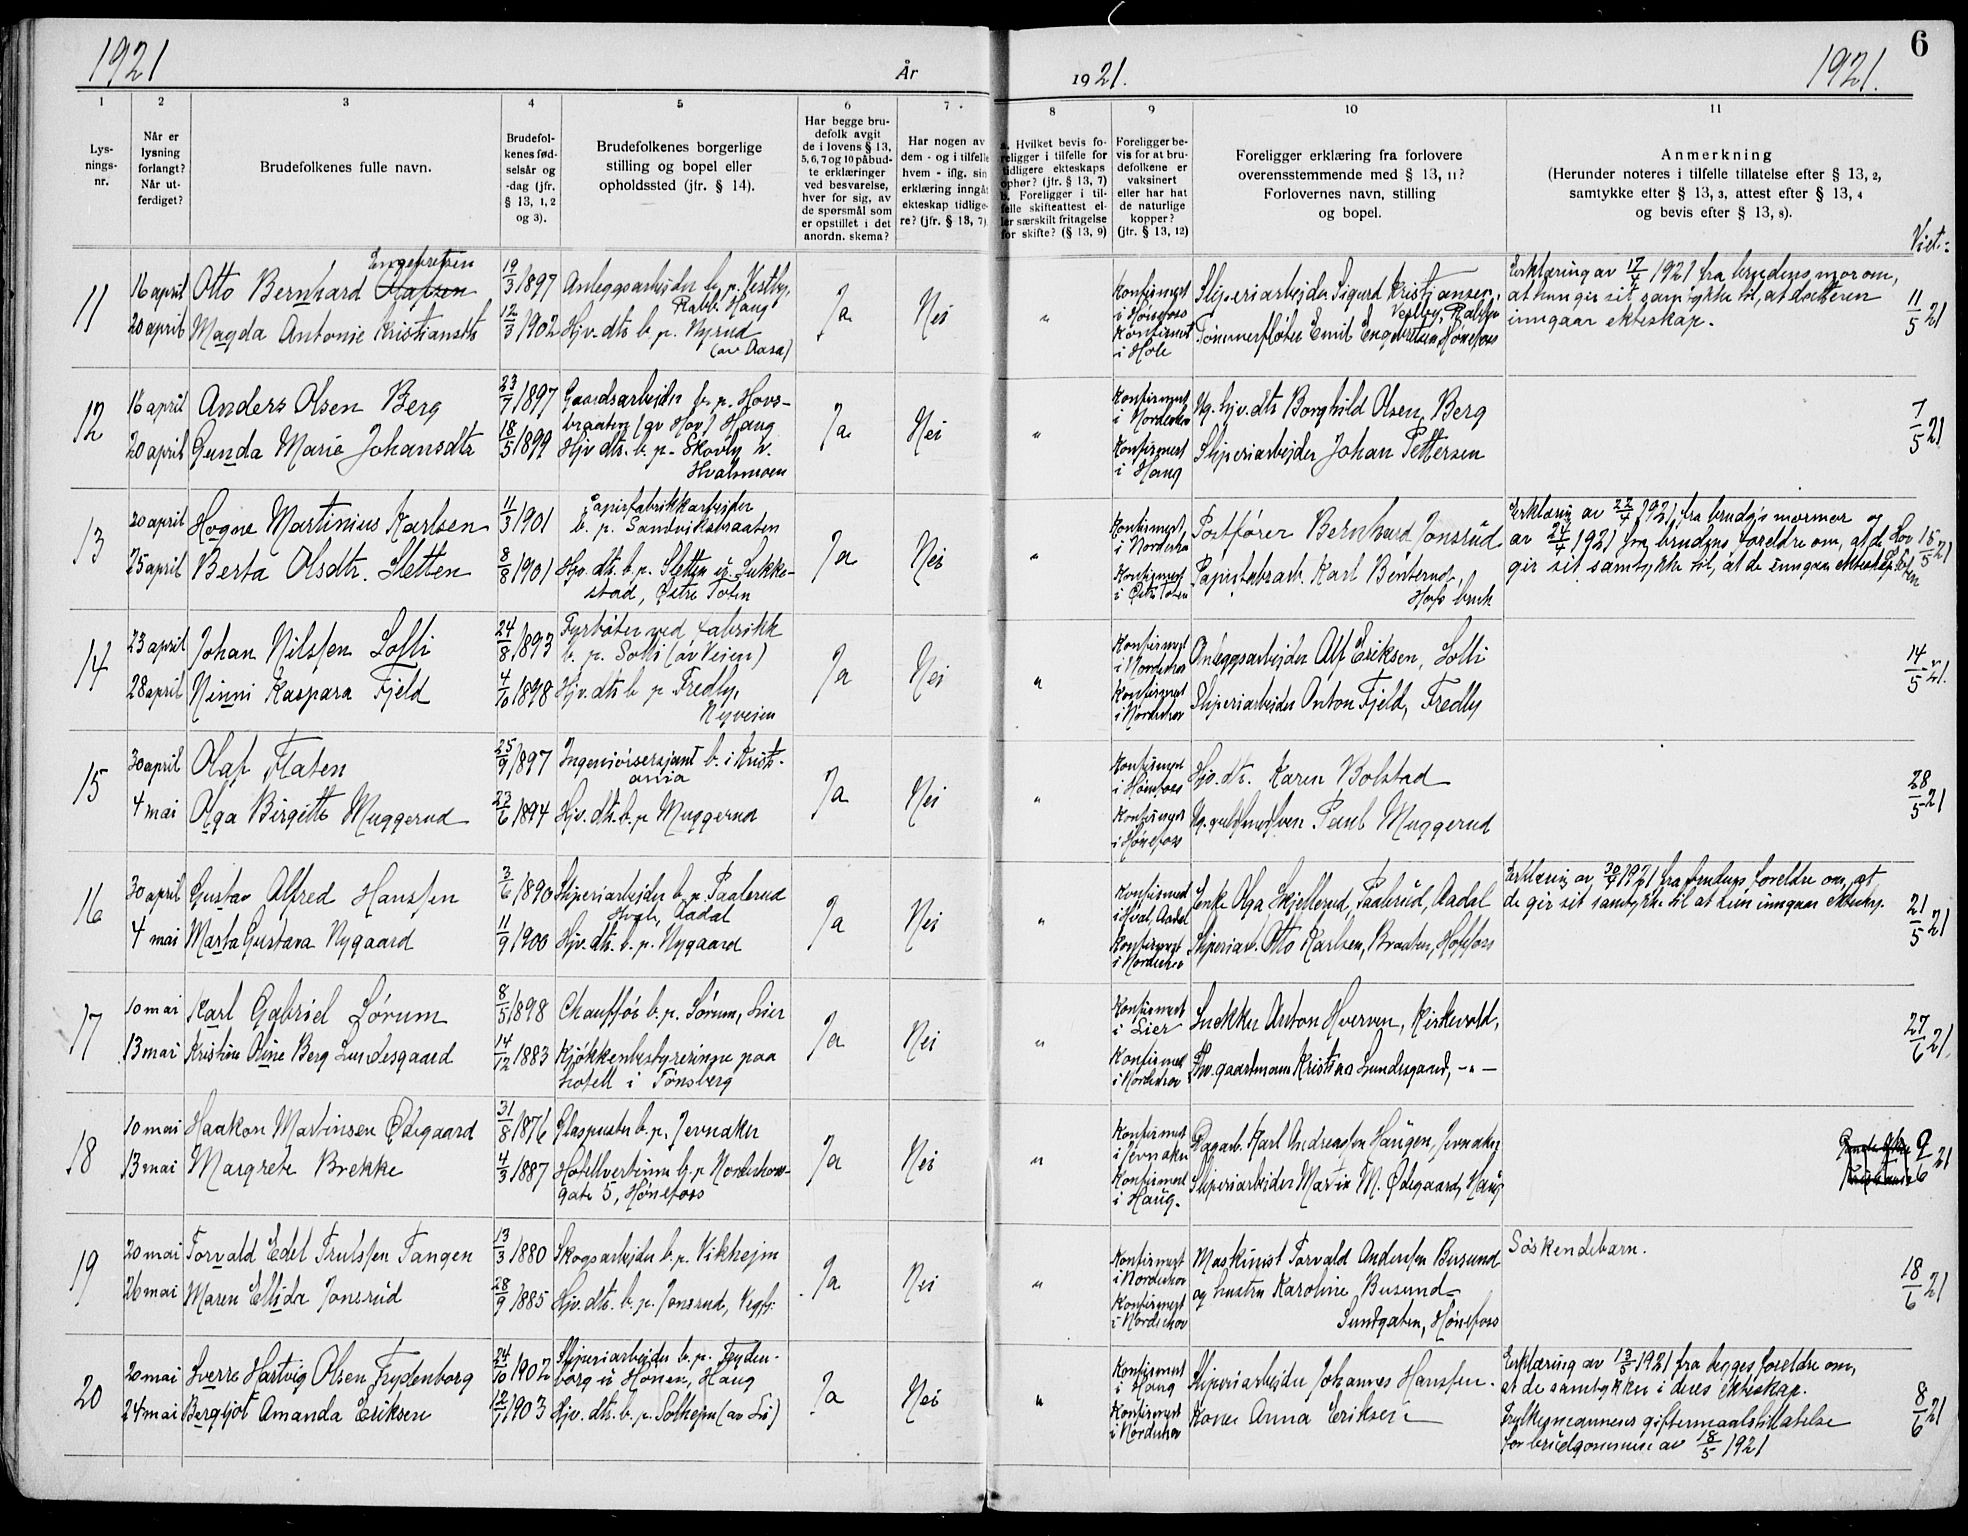 1921
År
1921.
1921.
6
1
2
3
4
5
6
7
8
9
10
11
Lys-
nings-
nr.
Når er
lysning
forlangt?
Når ut-
ferdiget?
Brudefolkenes fulle navn.
Brudefol-
kenes fød-
selsår og
-dag (jfr.
§ 13, 1, 2
og 3).
Brudefolkenes borgerlige
stilling og bopel eller
opholdssted (jfr. § 14).
Har begge bru-
defolk avgit
de i lovens § 13,
5, 6, 7 og 10 påbud-
te erklæringer
ved besvarelse,
hver for sig, av
de spørsmål som
er opstillet i det
anordn. skema?
Har nogen av
dem - og i tilfelle
hvem - iflg. sin
erklæring inngåt
ekteskap tidlige-
re? (jfr. § 13, 7)
a. Hvilket bevis fo-
religger i tilfelle for
tidligere ekteskaps
ophør? (jfr. § 13, 7)
b. Foreligger i til-
felle skifteattest el-
ler særskilt fritagelse
for skifte? (§ 13, 9)
Foreligger be-
vis for at bru-
defolkene er
vaksinert
eller har hat
de naturlige
kopper?
(jfr. § 13, 12)
Foreligger erklæring fra forlovere
overensstemmende med § 13, 11?
Forlovernes navn, stilling
og bopel.
Anmerkning
(Herunder noteres i tilfelle tillatelse efter § 13, 2,
samtykke efter § 13, 3, attest efter § 13, 4
og bevis efter § 13, 8).
Viet:
11
16 april
20 april
Engebretsen
Otto Bernhard
Magda Antonie Kristiansdtr
19/3 1897
12/3 1902
Anleggsarbejder b. p. Vestby,
Rabb. Haug
Hjv. dtr. b. p. Nyrud
(av Aasa)
Ja
Nei
"
Konfirmert
i Hønefoss
Konfirmert
i Hole
Sliperiarbejder Sigurd Kristiansen,
Vestby, Rabba
Tømmerfløter Emil Engebretsen, Hønefoss
Erklæring av 17/4 1921 fra brudens mor om,
at hun gir sit samtykke til, at datteren
inngaar ekteskap.
11/5 21
12
16 april
20 april
Anders Olsen Berg
Gunda Marie Johansdtr
23/7 1897
18/5 1899
Gaardsarbejder b. p. Hovs-
braaten (av Hov) Haug
Hjv dtr. b. p. Skovly v.
Hvalsmoen
Ja
Nei
"
Konfirmert
i Norderhov
Konfirmert
i Haug
Ug. hjv. dtr Borghild Olsen, Berg
Sliperiarbejder Johan Pettersen
7/5 21
13
20 april
25 april
Hogne Martinius Karlsen
Berta Olsdtr. Sletten
11/3 1901
8/8 1901
Papirfabrikkarbejder
b. p. Sandviksbraaten
Hjv. dtr. b. p. Sletten
stad, Østre Toten
Ja
Nei
"
Konfirmert
i Norderho
Konfirmert
i Østre Toten
Postfører Bernhard Jonsrud
Papirfabrarb. Karl Benterud,
Hofs bruk
Erklæring av 22/4 1921 fra brudg's mormor og
av 24/4 1921 fra brudens foreldre om, at de
gir sit samtykke til, at de inngaar ekteskap
15/5 21
14
23 april
28 april
Johan Nilssen Solli
Ninni Kaspara Fjeld
24/8 1893
4/10 1898
Fyrbøter ved fabrikk
b. p. Solli (av Veien)
Hjv. dtr. b. p. Fredly,
Nyveien
Ja
Nei
"
Konfirmert
i Norderhov
Konfirmert
i Norderhov
Anleggsarbejder Alf Eriksen, Solli
Sliperiarbejder Anton Fjeld, Fredly
14/5 21.
15
30 april
4 mai
Olaf Flaten
Olga Birgitte Muggerud
25/9 1897
23/6 1894
Ingeniørsersjant b. i Kristi-
ania
Hjv. dtr. b. p Muggerud
Ja
Nei
"
Konfirmert
i Hønefoss
Konfirmert
i Hønefoss
Hjv. dtr. Karen Bolstad
Ug. Paul Muggerud
28/5 21
16
30 april
4 mai
Gustav Alfred Hanssen
Marta Gustava Nygaard
3/6 1890
11/9 1900
Sliperiarbejder b. p. Paalerud
Hval, Aadal
Hjv. dtr. b. p. Nygaard
Ja
Nei
"
Konfirmert
i Hval Aadal
Konfirmert
i Norderhov
Enke Olga Skjellerud, Paalerud, Aadal
Sliperiarb. Otto Karlsen, Braaten, Hofsfoss
Erklæring av 30/4 1921 fra brudens foreldre om, at
de gir sit samtykke til at hun inngaar ekteskap.
21/5 21
17
10 mai
13 mai
Karl Gabriel Sørum
Kristine Oline Berg Lundesgaard
8/5 1898
14/12 1883
Chauffør b. p. Sørum, Lier
Kjøkkenbestyrerinne paa
hotell i Tønsberg
Ja
Nei
"
Konfirmert
i Lier
Konfirmert
i Norderhov
Snekker Anton Hverven, Kirkevold,
Fhv. gaardmann Kristian Lundesgaard, -"-
27/6 21.
18
10 mai
13 mai
Haakon Martinsen Ødegaard
Margrete Brekke
31/8 1876
4/3 1887
Glaspuster b. p. Jevnaker
Hotellvertinne b. p Norderhovs-
gate 5, Hønefoss
Ja
Nei
"
Konfirmert
i Jevnaker
Konfirmert
i Haug.
Dagarb. Karl Andreassen Haugen, Jevnaker
Sliperiarbejder Martin M. Ødegaard, Haug
9/6 21
19
20 mai
26 mai
Torvald Edel Trulssen Tangen
Maren Ellida Jonsrud
13/3 1880
28/9 1885
Skogsarbejder b. p. Vikhejm
Hjv. dtr. b. p. Jonsrud, Vegf.
Ja
Nei
"
Konfirmert
i Norderhov
Konfirmert
i Norderhov
Maskinist Torvald Anderssen Busund
og hustru Karoline Busund
Sundgaten, Hønefoss
Søskendebarn.
18/6 21
20
20 mai
24 mai
Sverre Hartvig Olsen Frydenborg
Bergljot Amanda Eriksen
24/10 1902
12/1 1903
Sliperiarbejder b. p. Fryden-
borg Hønen, Haug
Hjv. dtr. b. p. Solhejm (av Li)
Ja
Nei
"
Konfirmert
i Haug
Konfirmert
i Norderhov
Sliperiarbejder Johannes Hanssen.
Kone Anna Eriksen
Erklæring av 13/5 1921 fra begges foreldre om,
at de samtykker i deres ekteskap.
Fylkesmannens giftermaalstillatelse
for brudgommen av 18/5 1921
8/6 21